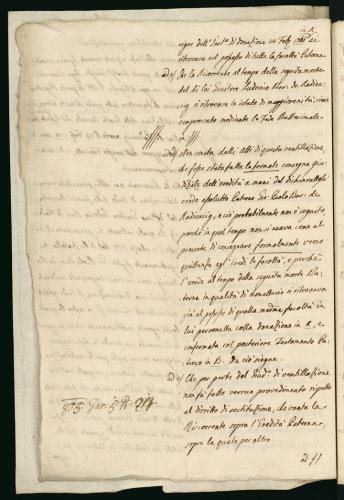 in A
vigor dell' Instr.o di donazione 14 Febr. 1785 si
ritrovava nel possesso di tutta la facoltà Paterna.
ad c/ Che la Ricorrente al tempo della seguita morte
del di lei Genitore Ludovico Bar: de
si ritrovava in istato di maggiorennità, viene
comprovato mediante la Fede Battesimale
in ///.
ad d/ Non consta dagli Atti di questa ventillazione,
che fosse stata fatta la formale consegna giu-
diziale dell' eredità a mani del Dichiarato
erede assoluto Paterno Sr: Paolo Bar: de
e ciò probabilmente non è seguito,
perché in quel tempo non si usava come al
presente di consegnare formalmente verso
quittanza agl' Eredi le facoltà, e perché
l' erede al tempo della seguita morte Pa-
terna in qualità di si ritrovava
già al possesso di quella medma facoltà in
lui pervenuta colla donazione in A, e
confermata col posteriore Testamento Pa-
terno in B. Da ciò siegue.
ad e/ Che per parte del Giud.o di ventillazione
non fu fatto verun provedimento rispetto
al diritto di sostituzione, che vanta la
Ricorrente sopra l' Eredità Paterna,
sopra la quale per altro.
ad f/